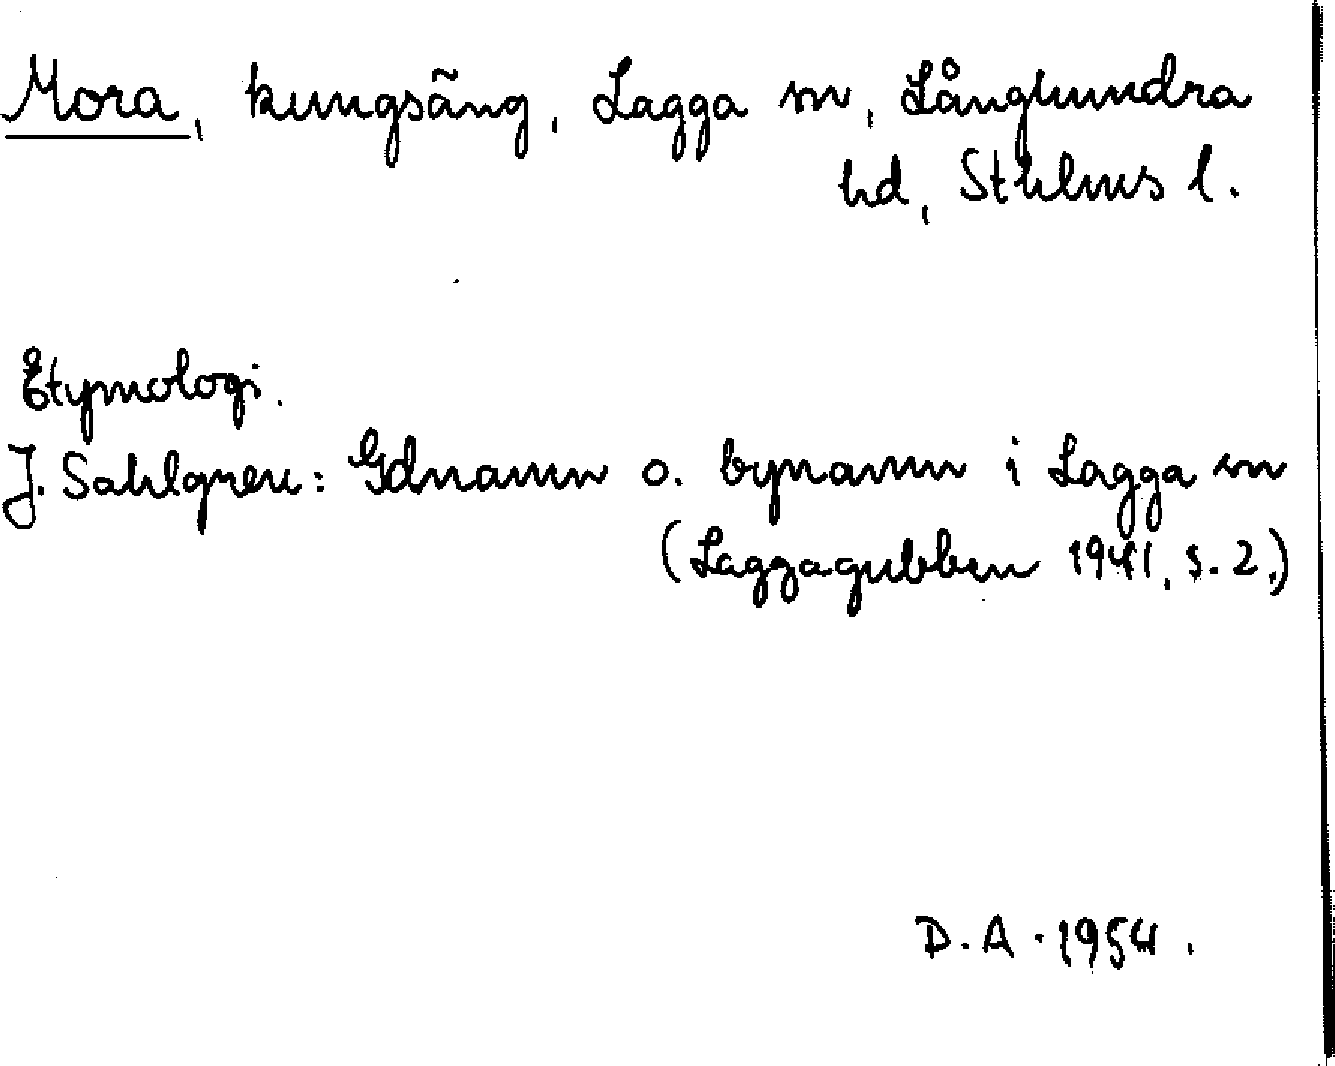 Mora, kungsäng, Lagga sn, Långhundra
hd, Sthlms l.
Etymologi.
J. Sahlgren: Gdnamn o. bynamn i Lagga sn
(Laggagubben 1941, s. 2.)
D. A. 1954.